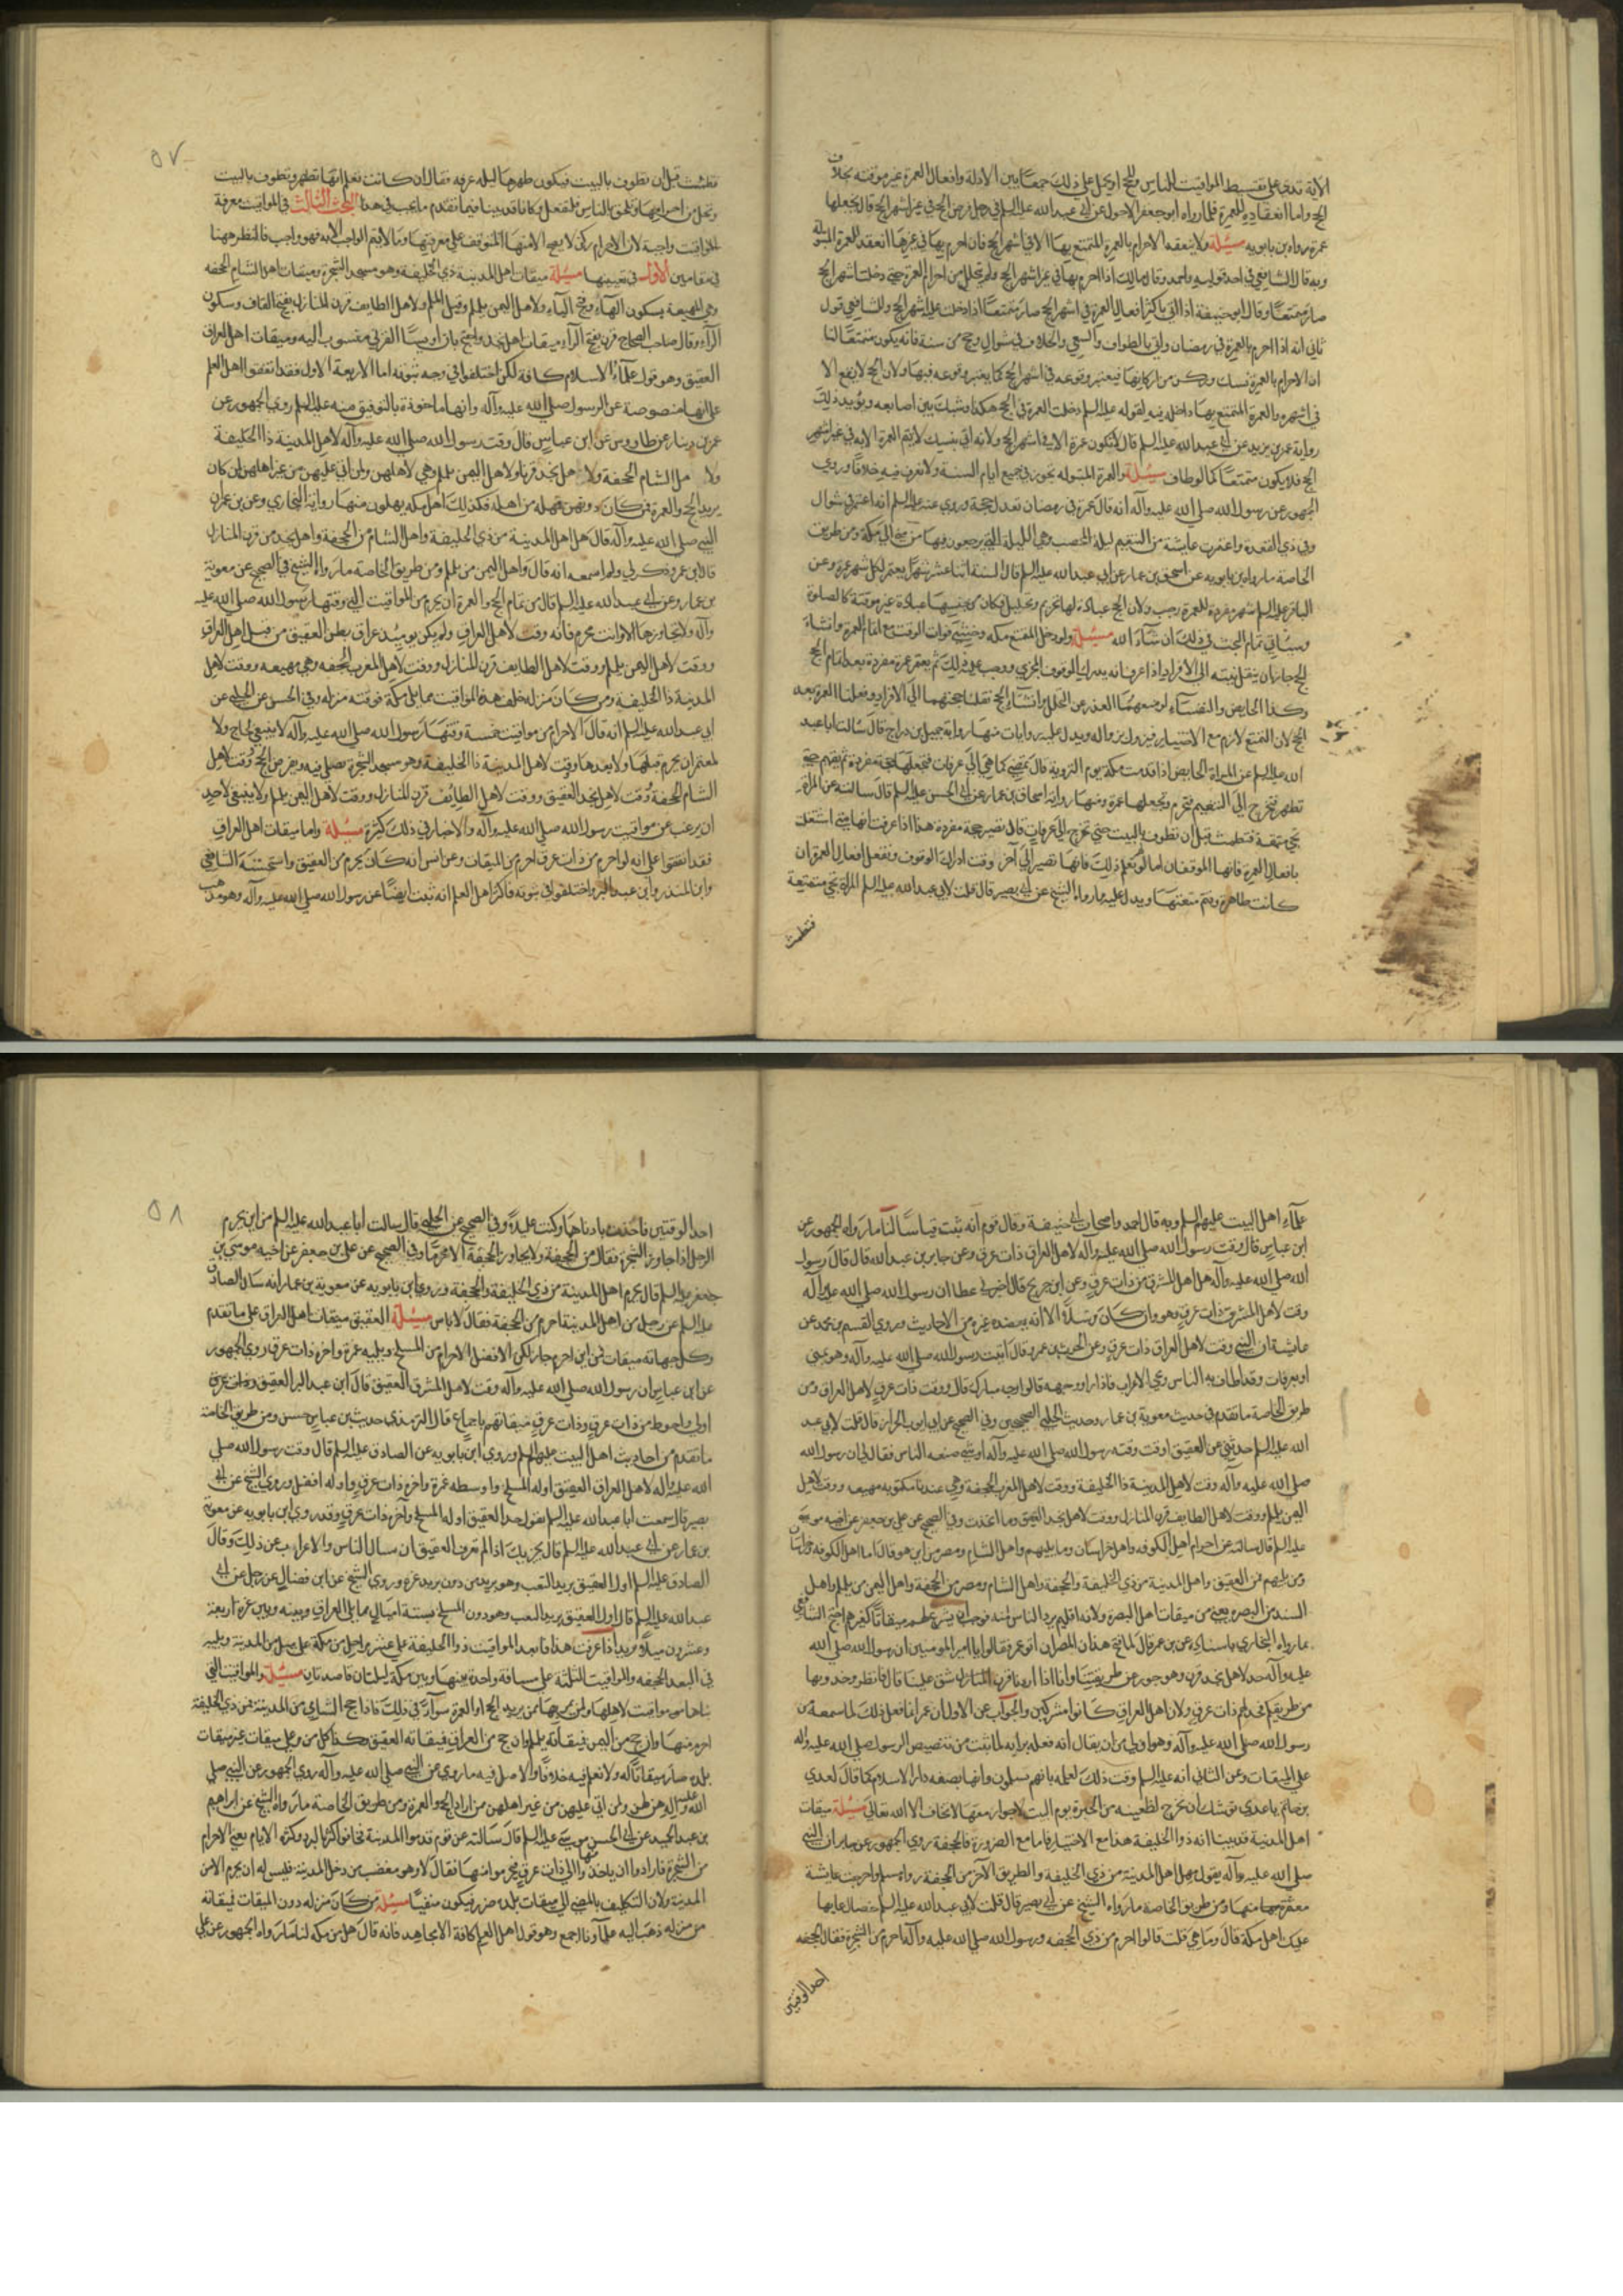 الآية تدل على تقسيط المواقيت للناس والحج او يحمل على ذلك جمعا بين الادلة وافعال العمرة غير موقتة بخلاف
الحج واما انعقاده للعمرة فلما رواه ابو جعفر الاحول عن ابي عبد الله عليه السلم في رجل فرض الحج في غير اشهر الحج قال يجعلها
عمرة رواه بن بابويه مسئلة ولا ينعقد الاحرام بالعمرة المتمتع بها الا في اشهر الحج فان احرم بها في غيرها انعقد للعمرة المبتولة
وبه قال الشافعي في احد قوليه واحمد وقال مالك اذا احرم بها في غير اشهر الحج ولم يتحلل من احرام العمرة حتى دخلت اشهر الحج
صار متمتعا وقال ابو حنيفة اذا اتى باكثر افعال العمرة في اشهر الحج صار متمتعا اذا دخلت عليه اشهر الحج وللشافعي قول
ثاني انه اذا احرم بالعمرة في رمضان واتى بالطواف والسعي والحلاق في شوال وحج من سنة فانه يكون متمتعا لنا
ان الاحرام بالعمرة نسك وركن من اركانها فيعتبر وقوعه في اشهر الحج كما يعتبر وقوعه فيها ولان الحج لا يقع الا
في اشهره والعمرة المتمتع بها داخلة فيه لقوله عليه السلم دخلت العمرة في الحج هكذا وشبك بين اصابعه ويؤيد ذلك
رواية عمر بن يزيد عن ابي عبد الله عليه السلم قال لا تكون عمرة الا في اشهر الحج ولانه اتى بنسك لا تتم العمرة الا به في غير اشهر
الحج فلا يكون متمتعا كما لو طاف مسئلة والعمرة المبتولة تجوز في جميع ايام السنة ولا نعرف فيه خلافا وروى
الجمهور عن رسول الله صلى الله عليه وآله انه قال عمرة في رمضان تعدل حجة وروي عنه عليه السلم انه اعتمر في شوال
وفي ذي القعدة واعتمرت عايشة من التنعيم ليلة المحصب وهي الليلة التي يرجعون فيها من منى الى مكة ومن طريق
الخاصة ما رواه بن بابويه عن اسحق بن عمار عن ابي عبد الله عليه السلم قال السنة اثنا عشر شهرا يعتمر لكل شهر عمرة وعن
الباقر عليه السلم شهر مفردة للعمرة رجب ولان الحج عبادة لها تحريم وتحليل فكان من جنسها عبادة غير موقتة كالصلوة
وسياتي تمام البحث في ذلك ان شاء الله مسئلة ولو دخل المتمتع مكة وخشي فوات الوقت مع اتمام العمرة وانشاء
الحج جاز ان ينقل نيته الى الافراد اذا عرف انه يدرك الوقوف المجزي ووجب عليه ذلك ثم يعتمر عمرة مفردة بعد اتمام الحج
وكذا الحايض والنفساء لو منعهما العذر عن التحلل وانشاء الحج نقلتا حجتهما الى الافراد وفعلتا العمرة بعد
الحج لان التمتع لازم مع الاختيار فيزول بزواله ويدل عليه روايات منها رواية جميل بن دراج قال سالت ابا عبد
الله عليه السلم عن المراة الحايض اذا قدمت مكة يوم التروية قال تمضي كما هي الى عرفات فتجعلها حجة مفردة ثم تقيم حتى
تطهر فتخرج الى التنعيم فتحرم وتجعلها عمرة ومنها رواية اسحاق بن عمار عن ابي الحسن عليه السلم قال سالته عن المراة
تجي متمتعة فتطمث قبل ان تطوف بالبيت حتى تخرج الى عرفات قال تصير حجة مفردة هذا اذا عرفت انها متى اشتغلت
بافعال العمرة فاتها الموقفان اما لو لم تعلم ذلك فانها تصير الى آخر وقت ادراك الوقوف وتفعل افعال العمرة ان
كانت طاهرة وتتم متعتها ويدل عليه ما رواه الشيخ عن ابي بصير قال قلت لابي عبد الله عليه السلم المراة تجي متمتعة
فتطمث
٥٧
فتطمث قبل ان تطوف بالبيت فيكون طهرها ليلة عرفة فقال ان كانت تعلم انها تطهر وتطوف بالبيت
وتحل من احرامها وتلحق بالناس فلتفعل وكنا قد بينا فيما تقدم ما يجب في هذا البحث الثالث في المواقيت معرفة
المواقيت واجبة لان الاحرام ركن لا يصح الا منها المتوقف على معرفتها وما لا يتم الواجب الا به فهو واجب فالنظر ههنا
في مقامين الاول في تعيينها مسئلة ميقات اهل المدينة ذي الحليفة وهو مسجد الشجرة وميقات اهل الشام الجحفة
وهي المهيعة بسكون الهاء وفتح الياء ولاهل اليمن يلملم وقيل الملم ولاهل الطايف قرن المنازل بفتح القاف وسكون
الراء وقال صاحب الصحاح قرن بفتح الراء ميقات اهل نجد واحتج بان اويسا القرني منسوب اليه وميقات اهل العراق
العقيق وهو قول علماء الاسلام كافة لكن اختلفوا في وجه ثبوته اما الاربعة الاول فقد اتفقوا اهل العلم
على انها منصوصة عن الرسول صلى الله عليه وآله وانها ماخوذة بالتوقيف منه عليه السلم روى الجمهور عن
عمر بن دينار عن طاووس عن ابن عباس قال وقت رسول الله صلى الله عليه وآله لاهل المدينة ذا الحليفة
ولاهل الشام الجحفة ولاهل نجد قرنا ولاهل اليمن يلملم وهي لاهلهن ولمن اتى عليهن من غير اهلهن لمن كان
يريد الحج والعمرة فمن كان دونهن فمهله من اهله فكذلك اهل مكة يهلون منها رواية البخاري وعن بن عمر ان
النبي صلى الله عليه وآله قال يهل اهل المدينة من ذي الحليفة واهل الشام من الجحفة واهل نجد من قرن المنازل
قال ابن عمر وذكر لي ولم اسمعه انه قال واهل اليمن من يلملم ومن طريق الخاصة ما رواه الشيخ في الصحيح عن معوية
بن عمار وعن ابي عبد الله عليه السلم قال من تمام الحج والعمرة ان يحرم من المواقيت التي وقتها رسول الله صلى الله عليه
وآله ولا تجاوزها الا وانت محرم فانه وقت لاهل العراق ولم يكن يومئذ عراق بطن العقيق من قبل اهل العراق
ووقت لاهل اليمن يلملم ووقت لاهل الطايف قرن المنازل ووقت لاهل المغرب الجحفة وهي مهيعه ووقت لاهل
المدينة ذا الحليفة ومن كان منزله خلف هذه المواقيت مما يلي مكة فوقته منزله وفي الحسن عن الحلبي عن
ابي عبد الله عليه السلم انه قال الاحرام من مواقيت خمسة وقتها رسول الله صلى الله عليه وآله لا ينبغي لحاج ولا
لمعتمر ان يحرم قبلها ولا بعدها وقت لاهل المدينة ذا الحليفة وهو مسجد الشجرة يصلي فيه ويفرض الحج ووقت لاهل
الشام الجحفة ووقت لاهل نجد العقيق ووقت لاهل الطايف قرن المنازل ووقت لاهل اليمن يلملم ولا ينبغي لاحد
ان يرغب عن مواقيت رسول الله صلى الله عليه وآله والاخبار في ذلك كثيرة مسئلة واما ميقات اهل العراق
فقد اتفقوا على انه لو احرم من ذات عرق احرم من الميقات وعن انس انه كان يحرم من العقيق واستحسنه الشافعي
وابن المنذر وابن عبد البر واختلفوا في ثبوته فاكثر اهل العلم انه ثبت ايضا عن رسول الله صلى الله عليه وآله وهو مذهب
علماء اهل البيت عليهم السلم وبه قال احمد واصحاب ابي حنيفة وقال قوم انه ثبت قياسا لنا ما رواه الجمهور عن
ابن عباس قال وقت رسول الله صلى الله عليه وآله لاهل العراق ذات عرق وعن جابر بن عبد الله قال قال رسول
الله صلى الله عليه وآله يهل اهل المشرق من ذات عرق وعن ابن جريج قال اخبرني عطا ان رسول الله صلى الله عليه وآله
وقت لاهل المشرق ذات عرق وهو وان كان مرسلا الا انه يعضده غيره من الاحاديث وروى القسم بن محمد عن
عايشة ان النبي وقت لاهل العراق ذات عرق وعن الحرث بن عمرو قال اتيت رسول الله صلى الله عليه وآله وهو بمنى
او بعرفات وقد اطاف به الناس وتجي الاعراب فاذا راوا وجهه قالوا وجه مبارك قال ووقت ذات عرق لاهل العراق ومن
طريق الخاصة ما تقدم في حديث معوية بن عمار وحديث الحلبي الصحيحين وفي الصحيح عن ابي ايوب الخزاز قال قلت لابي عبد
الله عليه السلم حدثني عن العقيق اوقت وقته رسول الله صلى الله عليه وآله او شي صنعه الناس فقال لي ان رسول الله
صلى الله عليه وآله وقت لاهل المدينة ذا الحليفة ووقت لاهل المغرب الجحفة وهي عندنا مكتوبه مهيعه ووقت لاهل
اليمن يلملم ووقت لاهل الطايف قرن المنازل ووقت لاهل نجد العقيق وما انجدت وفي الصحيح عن علي بن جعفر عن اخيه موسى
عليه السلم قال سالته عن احرام اهل الكوفه واهل خراسان وما يليهم واهل الشام ومصر من اين هو قال اما اهل الكوفه وخراسان
ومن يليهم فمن العقيق واهل المدينة من ذي الحليفة والجحفة واهل الشام ومصر من الجحفة واهل اليمن من يلملم واهل
السند من البصره يعني من ميقات اهل البصرة ولانه اقليم يرد الناس منه فوجب ان يشرع لهم ميقاتا كغيرهم احتج الشافعي
بما رواه البخاري باسناده عن بن عمر قال لما فتح هذان المصران اتوا عمر فقالوا يا امير المومنين ان رسول الله صلى الله
عليه وآله حد لاهل نجد قرن وهو جور عن طريقنا وانا اذا اردنا قرن المنازل شق علينا قال فانظروا حذوها
من طريقكم فحد لهم ذات عرق ولان اهل العراق كانوا مشركين والجواب عن الاول ان عمر انما فعل ذلك لما سمعه من
رسول الله صلى الله عليه وآله وهو اولى من ان يقال انه فعله برايه لما ثبت من تنصيص الرسول صلى الله عليه وآله
على الميقات وعن الثاني انه عليه السلم وقت ذلك لعلمه بانهم يسلمون وانها يصير دار الاسلام كما قال لعدي
بن حاتم يا عدي يوشك ان تخرج الظعينه من الحيرة يوم البيت لا جوار معها لا تخاف الا الله تعالى مسئلة ميقات
اهل المدينة قد بينا انه ذوا الحليفة هذا مع الاختيار فاما مع الضرورة فالجحفة روى الجمهور عن جابر ان النبي
صلى الله عليه وآله يقول مهل اهل المدينة من ذي الحليفة والطريق الآخر من الجحفة رواه مسلم واحرمت عايشة
معتمرة منها ومن طريق الخاصة ما رواه الشيخ عن ابي بصير قال قلت لابي عبد الله عليه السلم خصال عابها
عليك اهل مكة قال وما هي قلت قالوا احرم من ذي الجحفه ورسول الله صلى الله عليه وآله احرم من الشجرة فقال الجحفه
احد الوقتين
٥٨
احد الوقتين فاخذت بادناها وكنت عليلا وفي الصحيح عن الحلبي قال سالت ابا عبد الله عليه السلم من اين يحرم
الرجل اذا جاوز الشجرة فقال من الجحفة ولا يجاوز الجحفة الا محرما وفي الصحيح عن علي بن جعفر عن اخيه موسى بن
جعفر عليه السلم قال يحرم اهل المدينة من ذي الحليفة والجحفة وروى ابن بابويه عن معوية بن عمار انه سال الصادق
عليه السلم عن رجل من اهل المدينة احرم من الجحفة فقال لا باس مسئلة العقيق ميقات اهل العراق على ما تقدم
وكل جهاته ميقات فمن اين احرم جاز لكن الافضل الاحرام من المسلخ ويليه غمرة واخره ذات عرق روى الجمهور
عن ابن عباس ان رسول الله صلى الله عليه وآله وقت لاهل المشرق العقيق قال ابن عبد البر العقيق
اولى واحوط من ذات عرق وذات عرق ميقاتهم باجماع قال الترمذي حديث بن عباس حسن ومن طريق الخاصة
ما تقدم من احاديث اهل البيت عليهم السلم وروى ابن بابويه عن الصادق عليه السلم قال وقت رسول الله صلى
الله عليه وآله لاهل العراق العقيق اوله المسلخ واوسطه غمرة واخره ذات عرق واوله افضل وروى الشيخ عن ابي
بصير قال سمعت ابا عبد الله عليه السلم يقول حد العقيق اوله المسلخ وآخره ذات عرق وقد روى ابن بابويه عن معوية
بن عمار عن ابي عبد الله عليه السلم قال يجزيك اذا لم تعرف العقيق ان تسال الناس والاعراب عن ذلك وقال
الصادق عليه السلم اول العقيق بريد البعث وهو بريد من دون بريد غمرة وروى الشيخ عن ابن فضال عن رجل عن ابي
عبد الله عليه السلم قال اول العقيق بريد البعث وهو دون المسلخ بستة اميال مما يلي العراق وبينه وبين غمرة اربعة
وعشرون ميلا بريدان اذا عرفت هذا فابعد المواقيت ذوا الحليفة على عشر مراحل من مكة على ميل من المدينة ويليه
في البعد الجحفه والمواقيت الثلثة على مسافة واحدة بينها وبين مكة ليلتان قاصدتان مسئلة والمواقيت التي
بيناها مواقيت لاهلها ولمن يمر بها ممن يريد الحج او العمرة سواء في ذلك فاذا حج الشامي من المدينة فمن ذي الحليفة
احرم منها وان حج من اليمن فميقاته يلملم وان حج من العراق فميقاته العقيق وكذا كل من مر على ميقات غير ميقات
بلده صار ميقاتا له ولا نعلم فيه خلافا والاصل فيه ما روي عن النبي صلى الله عليه وآله روى الجمهور عن النبي صلى
الله عليه وآله هن لهن ولمن اتى عليهن من غير اهلهن ممن اراد الحج والعمرة ومن طريق الخاصة ما رواه الشيخ عن ابراهيم
بن عبد الحميد عن ابي الحسن موسى عليه السلم قال سالته عن قوم قدموا المدينة فخافوا كثرة البرد وكثرة الايام يعني الاحرام
من الشجرة فارادوا ان ياخذوا منها الى ذات عرق فيحرموا منها فقال لا وهو مغضب من دخل المدينة فليس له ان يحرم الا من
المدينة ولان التكليف بالمضي الى ميقات بلده ضرر فيكون منفيا مسئلة من كان منزله دون الميقات فميقاته
من منزله ذهب اليه علماونا اجمع وهو قول اهل العلم كافة الا مجاهد فانه قال يهل من مكة لنا ما رواه الجمهور عن علي